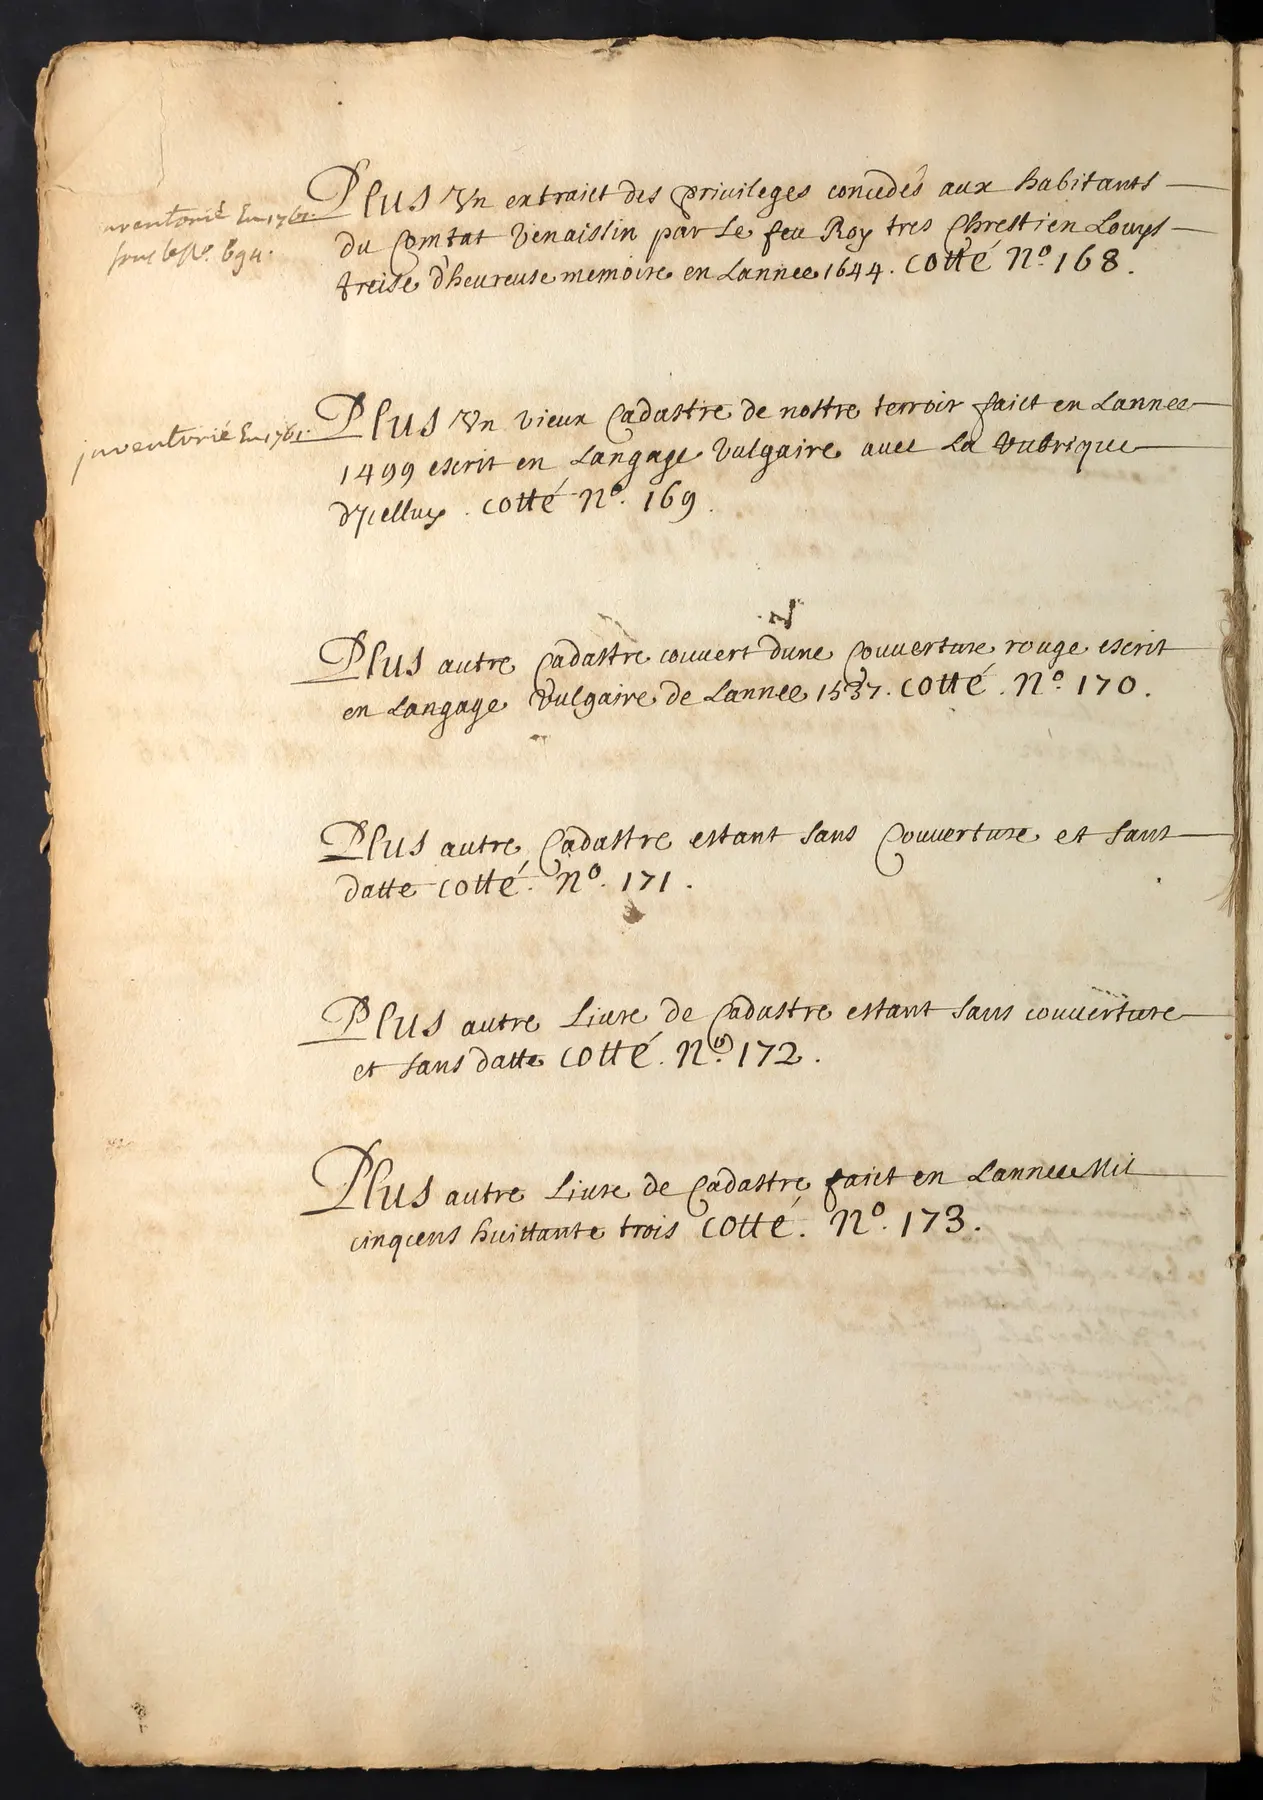 Plus Vn extraict des privileges concedés aux habitants
inventorié En 1761.
sous le No. 694.
du Comtat Venaissin par Le feu Roy tres Chrestien Louys
treise d'heureuse memoire en Lannee 1644. Cotté No. 168.
Plus Vn vieux Cadastre de nostre terroir faict en Lannee
inventorié En 1761.
1499 escrit en Langage Vulgaire auec La Rubrique
d'Icelluy. Cotté No. 169.
Plus autre Cadastre couuert dune Couuerture rouge escrit
en Langage Vulgaire de Lannee 1537. Cotté. No. 170.
Plus autre Cadastre estant sans Couuerture et sans
datte Cotté. No. 171.
Plus autre Liure de Cadastre estant sans couuerture
et sans datte Cotté. No. 172.
Plus autre Liure de Cadastre faict en Lannee Mil
cinqcens huittante trois Cotté. No. 173.